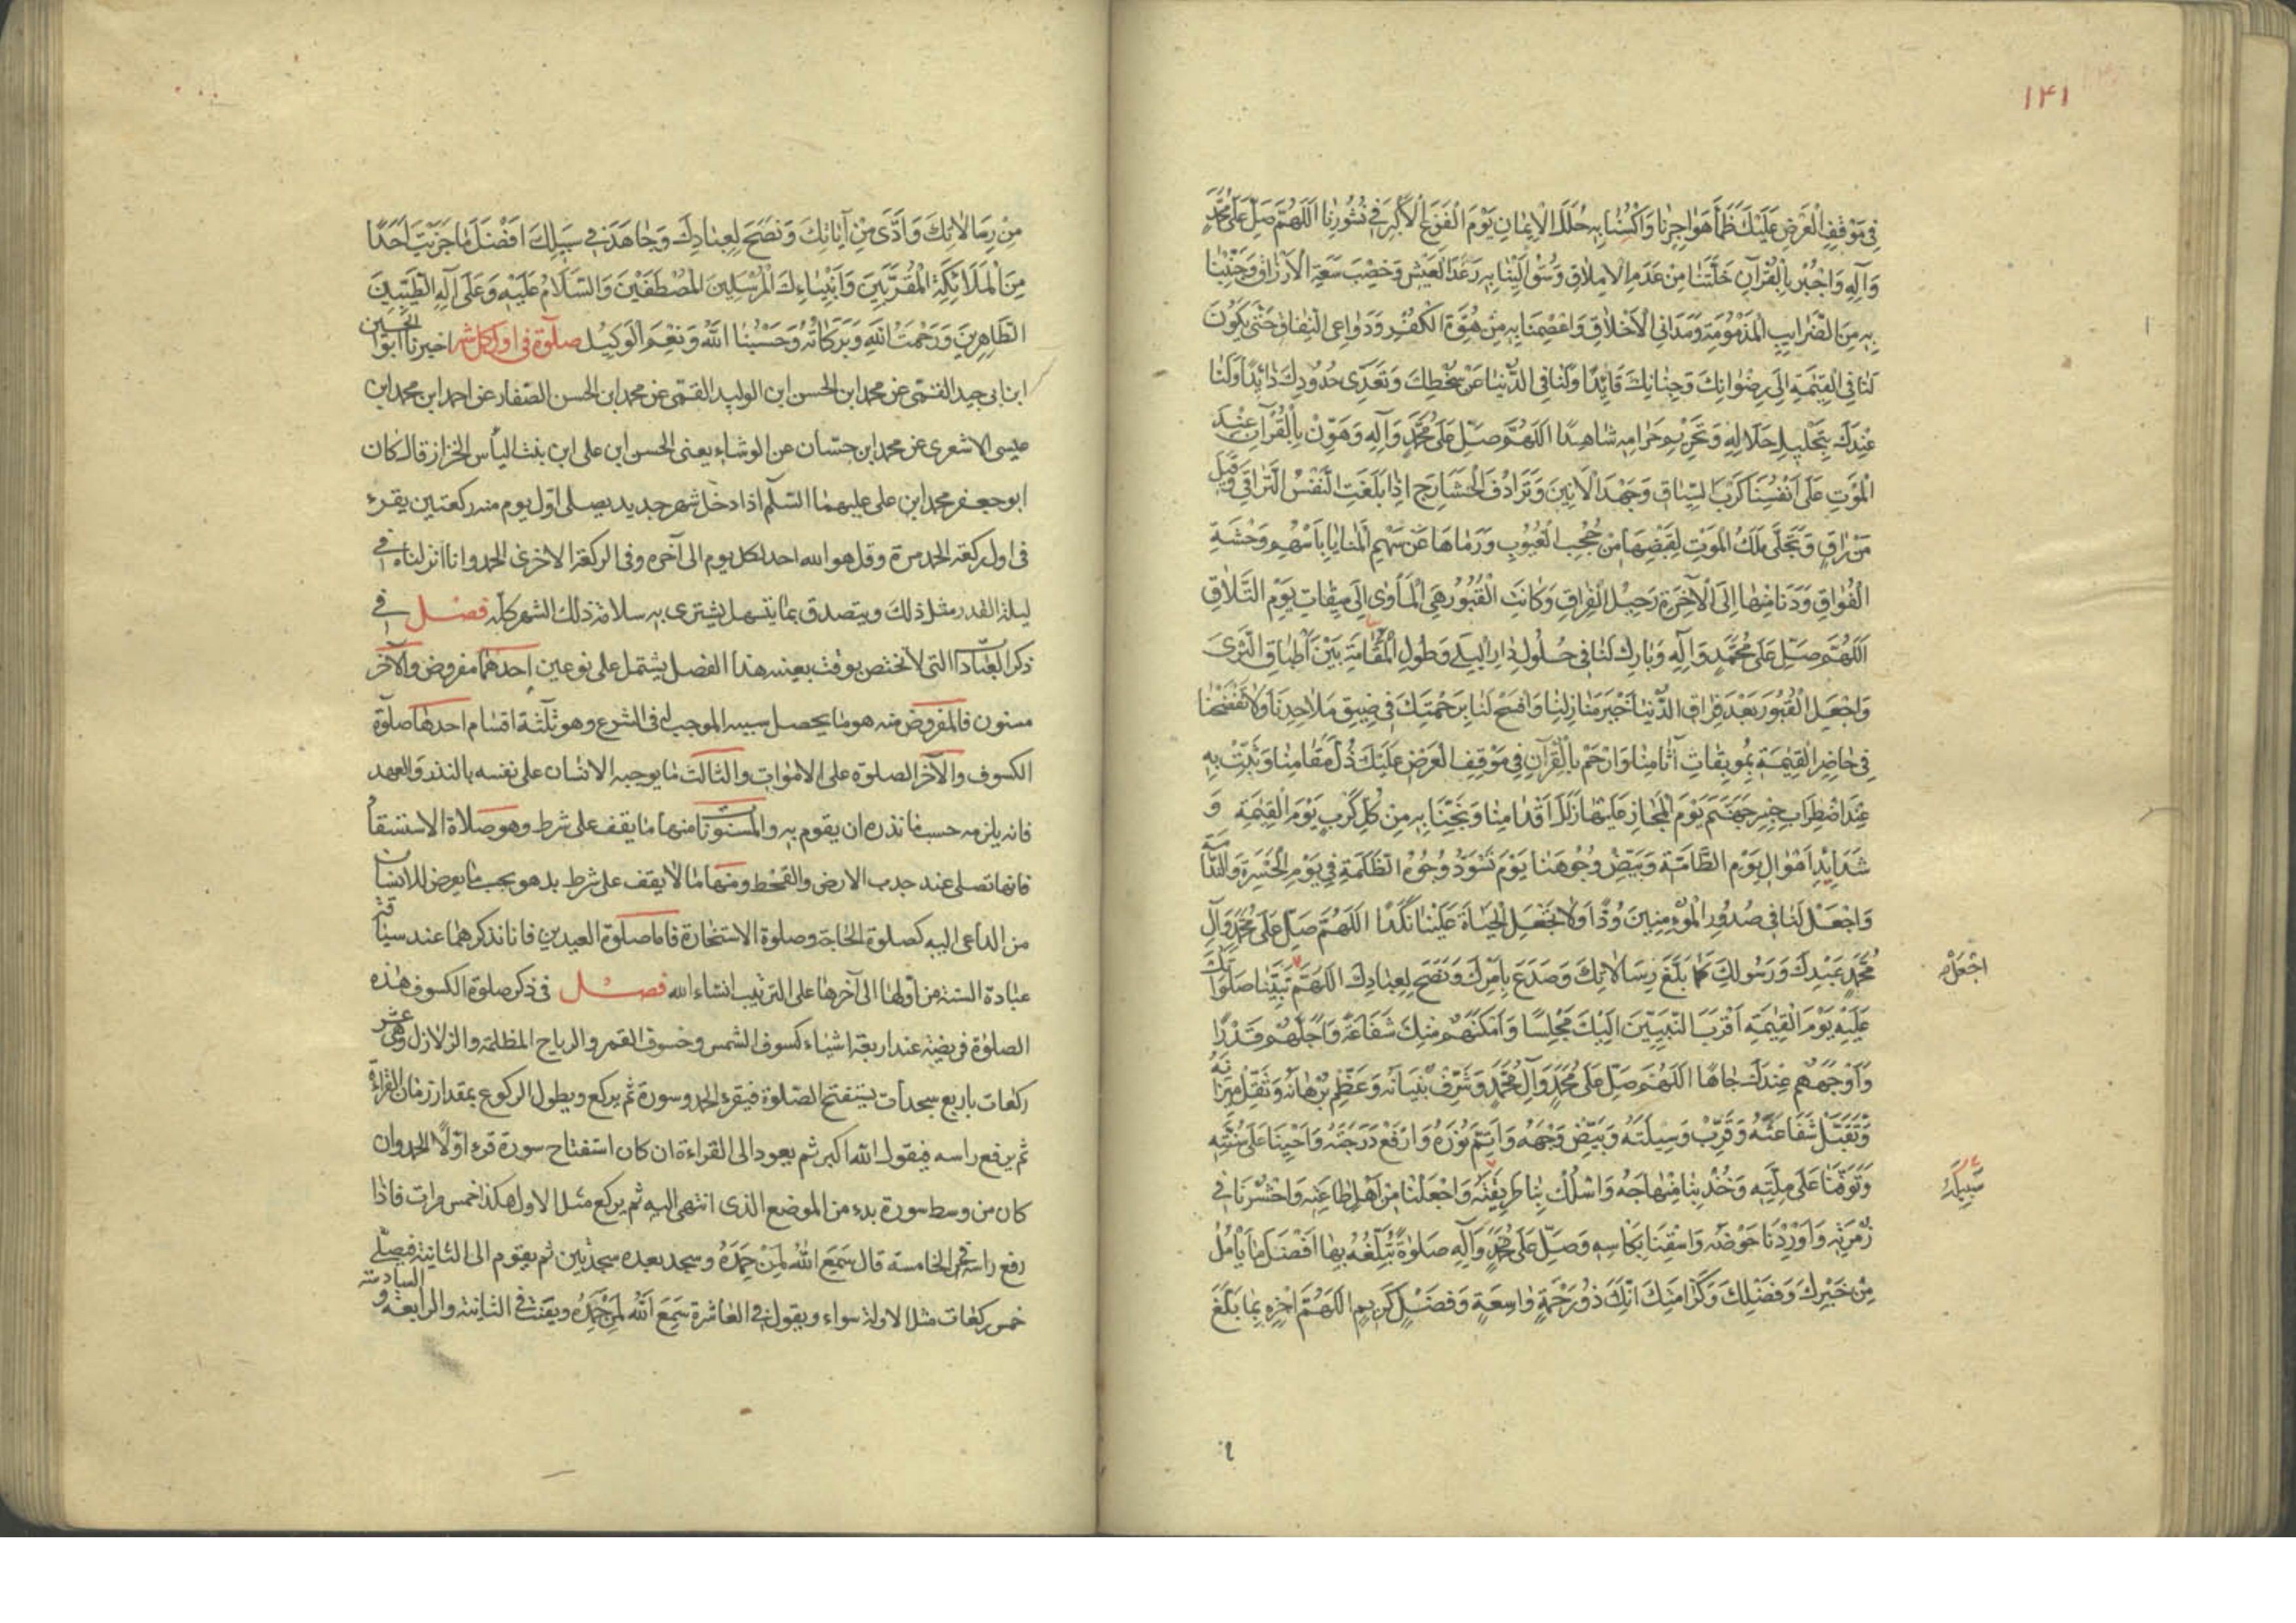 ١٤١
فِى مَوْقِفِ الْعَرْضِ عَلَيْكَ ظَمَأَ هَوَاجِرِنَا وَاكْسُنَا بِهِ حُلَلَ الْاِيمَانِ يَوْمَ الْفَزَعِ الْاَكْبَرِ فِى نُشُورِنَا اَللّهُمَّ صَلِّ عَلَى مُحَمَّدٍ
وَآلِهِ وَاجْبُرْ بِالْقُرْآنِ خَلَّتَنَا مِنْ عَدَمِ الْاِمْلَاقِ وَسُقْ اِلَيْنَا بِهِ رَغَدَ الْعَيْشِ وَخِصْبَ سَعَةِ الْاَرْزَاقِ وَجَنِّبْنَا
بِهِ مِنَ الضَّرَايِبِ الْمَذْمُومَةِ وَمَدَانِى الْاَخْلَاقِ وَاعْصِمْنَا بِهِ مِنْ هُوَّةِ الْكُفْرِ وَدَوَاعِى النِّفَاقِ حَتّى يَكُونَ
لَنَا فِى الْقِيمَةِ اِلَى رِضْوَانِكَ وَجِنَانِكَ قَائِدًا وَلَنَا فِى الدُّنْيَا عَنْ سَخَطِكَ وَتَعَدِّى حُدُودِكَ ذَائِدًا وَلَنَا
عِنْدَكَ بِتَحْلِيلِ حَلَالِهِ وَتَحْرِيمِ حَرَامِهِ شَاهِدًا اَللّهُمَّ صَلِّ عَلَى مُحَمَّدٍ وَآلِهِ وَهَوِّنْ بِالْقُرْآنِ عِنْدَ
الْمَوْتِ عَلَى اَنْفُسِنَا كَرْبَ السِّيَاقِ وَجَهْدَ الْاَنِينَ وَتَرَادُفَ الْحَشَارِجِ اِذَا بَلَغَتِ النَّفْسُ التَّرَاقِىَ وَقِيلَ
مَنْ رَاقٍ وَتَجَلَّى مَلَكُ الْمَوْتِ لِقَبْضِهَا مِنْ حُجُبِ الْغُيُوبِ وَرَمَاهَا عَنْ سَهْمِ الْمَنَايَا بِاَسْهُمِ وَحْشَةِ
الْفُوَاقِ وَدَنَا مِنْهَا اِلَى الْآخِرَةِ رَحِيلُ الْفِرَاقِ وَكَانَتِ الْقُبُورُ هِىَ الْمَأْوى اِلَى مِيقَاتِ يَوْمِ التَّلَاقِ
اَللّهُمَّ صَلِّ عَلَى مُحَمَّدٍ وَآلِهِ وَبَارِكْ لَنَا فِى حُلُولِ دَارِ الْبِلَى وَطُولِ الْمُقَامَةِ بَيْنَ اَطْبَاقِ الثَّرَى
وَاجْعَلِ الْقُبُورَ بَعْدَ فِرَاقِ الدُّنْيَا خَيْرَ مَنَازِلِنَا وَافْسَحْ لَنَا بِرَحْمَتِكَ فِى ضِيقِ مَلَاحِدِنَا وَلَا تَفْضَحْنَا
فِى حَاضِرِ الْقِيمَةِ بِمُوبِقَاتِ آثَامِنَا وَارْحَمْ بِالْقُرْآنِ فِى مَوْقِفِ الْعَرْضِ عَلَيْكَ ذُلَّ مَقَامِنَا وَثَبِّتْ بِهِ
عِنْدَ اضْطِرَابِ جِسْرِ جَهَنَّمَ يَوْمَ الْمَجَازِ عَلَيْهَا زَلَلَ اَقْدَامِنَا وَنَجِّنَا بِهِ مِنْ كُلِّ كَرْبٍ يَوْمَ الْقِيمَةِ وَ
شَدَايِدِ اَهْوَالِ يَوْمِ الطَّامَّةِ وَبَيِّضْ وُجُوهَنَا يَوْمَ تَسْوَدُّ وُجُوهُ الظَّلَمَةِ فِى يَوْمِ الْحَسْرَةِ وَالنَّدَامَةِ
وَاجْعَلْ لَنَا فِى صُدُورِ الْمُؤْمِنِينَ وُدًّا وَلَا تَجْعَلِ الْحَيَاةَ عَلَيْنَا نَكَدًا اَللّهُمَّ صَلِّ عَلَى مُحَمَّدٍ وَآلِ
مُحَمَّدٍ عَبْدِكَ وَرَسُولِكَ كَمَا بَلَّغَ رِسَالَاتِكَ وَصَدَعَ بِاَمْرِكَ وَنَصَحَ لِعِبَادِكَ اَللّهُمَّ نَبِيَّنَا صَلَوَاتُكَ
اجْعَلْ
عَلَيْهِ يَوْمَ الْقِيمَةِ اَقْرَبَ النَّبِيِّينَ اِلَيْكَ مَجْلِسًا وَاَمْكَنَهُمْ مِنْكَ شَفَاعَةً وَاَجَلَّهُمْ قَدْرًا
وَاَوْجَهَهُمْ عِنْدَكَ جَاهًا اَللّهُمَّ صَلِّ عَلَى مُحَمَّدٍ وَآلِ مُحَمَّدٍ وَشَرِّفْ بُنْيَانَهُ وَعَظِّمْ بُرْهَانَهُ وَثَقِّلْ مِيزَانَهُ
وَتَقَبَّلْ شَفَاعَتَهُ وَقَرِّبْ وَسِيلَتَهُ وَبَيِّضْ وَجْهَهُ وَاَتِمَّ نُورَهُ وَارْفَعْ دَرَجَتَهُ وَاَحْيِنَا عَلَى سُنَّتِهِ
وَتَوَفَّنَا عَلَى مِلَّتِهِ وَخُذْ بِنَا مِنْهَاجَهُ وَاسْلُكْ بِنَا طَرِيقَتَهُ وَاجْعَلْنَا مِنْ اَهْلِ طَاعَتِهِ وَاحْشُرْنَا فِى
سَبِيلَهُ
زُمْرَتِهِ وَاَوْرِدْنَا حَوْضَهُ وَاسْقِنَا بِكَاسِهِ وَصَلِّ عَلَى مُحَمَّدٍ وَآلِهِ صَلوةً تُبَلِّغُهُ بِهَا اَفْضَلَ مَا يَأْمُلُ
مِنْ خَيْرِكَ وَفَضْلِكَ وَكَرَامَتِكَ اِنَّكَ ذُو رَحْمَةٍ وَاسِعَةٍ وَفَضْلٍ كَرِيمٍ اَللّهُمَّ اجْزِهِ بِمَا بَلَّغَ
مِنْ رِسَالَاتِكَ وَاَدَّى مِنْ آيَاتِكَ وَنَصَحَ لِعِبَادِكَ وَجَاهَدَ فِى سَبِيلِكَ اَفْضَلَ مَا جَزَيْتَ اَحَدًا
مِنَ الْمَلَائِكَةِ الْمُقَرَّبِينَ وَاَنْبِيَاءِكَ الْمُرْسَلِينَ الْمُصْطَفَيْنَ وَالسَّلَامُ عَلَيْهِ وَعَلَى آلِهِ الطَّيِّبِينَ
الطَّاهِرِينَ وَرَحْمَتُ اللّهِ وَبَرَكَاتُهُ وَحَسْبُنَا اللّهُ وَنِعْمَ الْوَكِيلُ صلوة فى اول كل شهر اخبرنا ابو الحسين
ابن ابى جيد القمّى عن محمد ابن الحسن ابن الوليد القمّى عن محمد ابن الحسن الصّفار عن احمد ابن محمد ابن
عيسى الاشعرى عن محمد ابن حسّان عن الوشاء يعنى الحسن ابن على ابن بنت الياس الخزاز قال كان
ابو جعفر محمد ابن على عليهما السّلم اذا دخل شهر جديد يصلى اوّل يوم منه ركعتين يقرء
فى اول ركعة الحمد مرة وقل هو الله احد لكل يوم الى آخره وفى الركعة الاخرى الحمد وانا انزلناه فى
ليلة القدر مثل ذلك ويتصدق بما يتسهل يشترى به سلامة ذلك الشهر كله فصل فى
ذكر العبادات التى لا تختص بوقت بعينه هذا الفصل يشتمل على نوعين احدهما مفروض والآخر
مسنون فالمفروض منه هو ما يحصل سببه الموجب له فى الشرع وهو ثلثة اقسام احدها صلوة
الكسوف والآخر الصلوة على الاموات والثالث ما يوجبه الانسان على نفسه بالنذر والعهد
فانه يلزمه حسب ما نذره ان يقوم به والمسنونات منها ما يقف على شرط وهو صلاة الاستسقا
فانها تصلى عند جدب الارض والقحط ومنها ما لا يقف على شرط بل هو بحب ما يعرض للانسان
من الداعى اليه كصلوة الحاجة وصلوة الاستخارة فاما صلوة العيدين فانا نذكرهما عند سياقة
عبادة السنة من اولها الى آخرها على الترتيب انشاء الله فصل فى ذكر صلوة الكسوف هذه
الصلوة فريضة عند اربعة اشياء كسوف الشمس وخسوف القمر والرياح المظلمة والزلازل وهى عشر
ركعات باربع سجدات يستفتح الصّلوة فيقرء الحمد وسورة ثم يركع ويطول الركوع بمقدار زمان القراءة
ثم يرفع راسه فيقول الله اكبر ثم يعود الى القراءة ان كان استفتاح سورة قرء اوّلا الحمد وان
كان من وسط سورة بدء من الموضع الذى انتهى اليه ثم يركع مثل الاول هكذا خمس مرات فاذا
رفع راسه فى الخامسة قال سَمِعَ اللّهُ لِمَنْ حَمِدَهُ وسجد بعده سجدتين ثم يقوم الى الثانية فيصلّى
خمس ركعات مثل الاولة سواء ويقول فى العاشرة سَمِعَ اللّهُ لِمَنْ حَمِدَهُ ويقنت فى الثانية والرابعة و السادسة